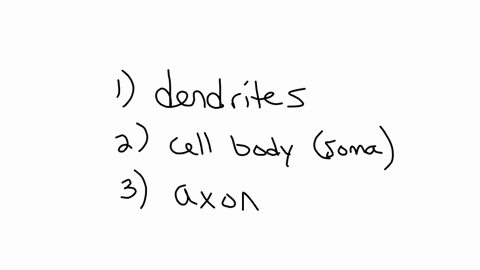 1) dendrites
2) cell body (soma)
3) axon